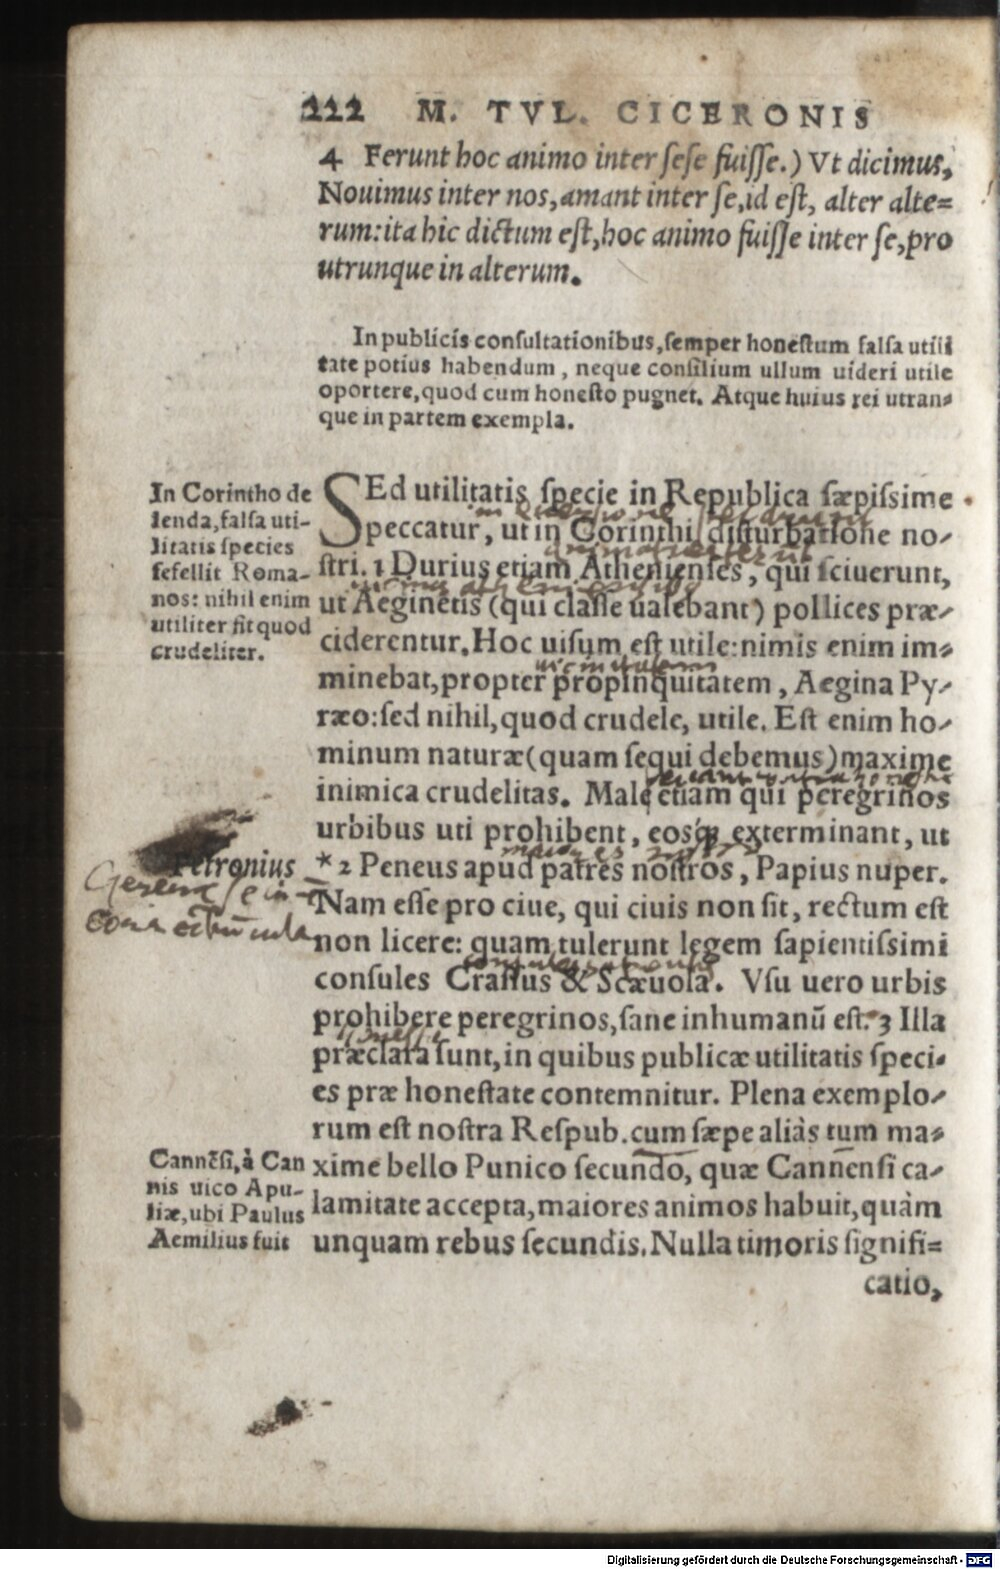 222 M. TVL. CICERONIS
4 Ferunt hoc animo inter sese fuisse.) Vt dicimus,
Nouimus inter nos, amant inter se, id est, alter alte=
rum: ita hic dictum est, hoc animo fuisse inter se, pro
utrunque in alterum.
In publicis consultationibus, semper honestum falsa utili
tate potius habendum, neque consilium ullum uideri utile
oportere, quod cum honesto pugnet. Atque huius rei utran=
que in partem exempla.
In Corintho de
lenda, falsa uti-
litatis species
fefellit Roma-
nos: nihil enim
utiliter fit quod
crudeliter.
SEd utilitatis specie in Republica sæpissime
peccatur, ut in Corinthi disturbatione no-
stri. 1 Durius etiam Athenienses, qui sciuerunt,
ut Aeginetis (qui classe ualebant) pollices præ-
ciderentur. Hoc uisum est utile: nimis enim im=
minebat, propter propinquitatem, Aegina Py-
ræo: sed nihil, quod crudele, utile. Est enim ho-
minum naturæ (quam sequi debemus) maxime
inimica crudelitas. Male etiam qui peregrinos
urbibus uti prohibent, eosq́ꝫ exterminant, ut
Petronius
*2 Peneus apud patres nostros, Papius nuper.
Nam esse pro ciue, qui ciuis non sit, rectum est
non licere: quam tulerunt legem sapientissimi
consules Crassus & Scæuola. Vsu uero urbis
prohibere peregrinos, sane inhumanũ est. 3 Illa
præclara sunt, in quibus publicæ utilitatis speci=
es præ honestate contemnitur. Plena exemplo-
rum est nostra Respub. cum sæpe aliàs tum ma=
xime bello Punico secundo, quæ Cannensi ca-
lamitate accepta, maiores animos habuit, quàm
unquam rebus secundis. Nulla timoris signifi=
Cannẽsi, à Can
nis uico Apu-
liæ, ubi Paulus
Aemilius fuit
catio,
Digitalisierung gefördert durch die Deutsche Forschungsgemeinschaft - DFG